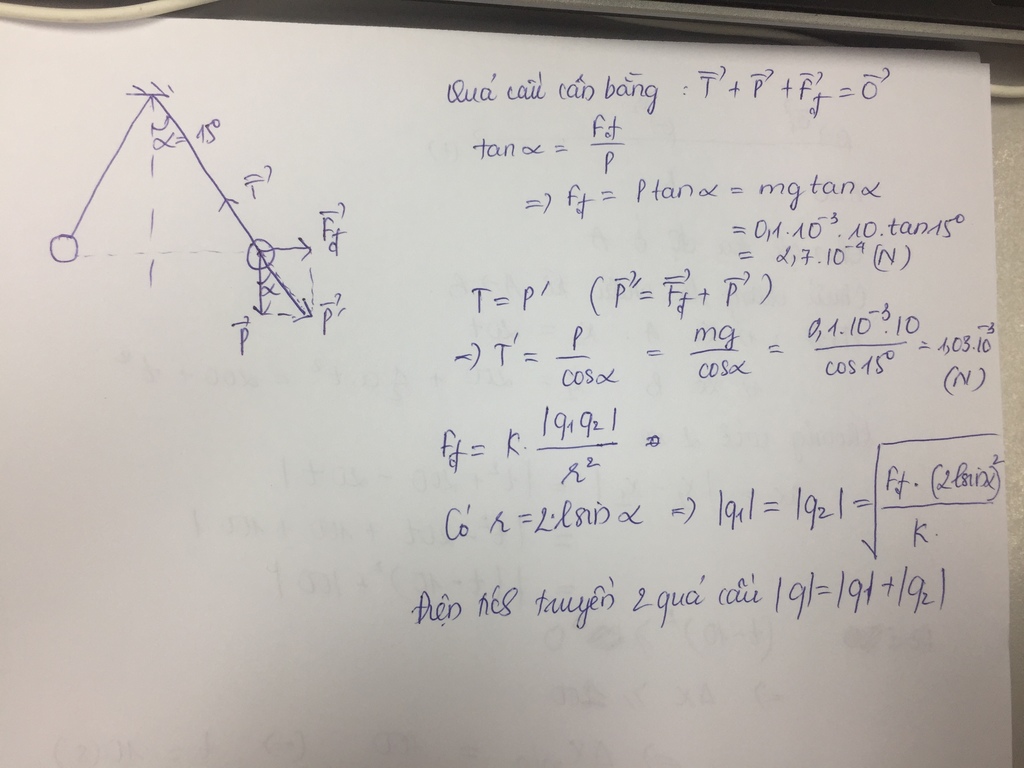 α = 15°
T⃗
F⃗đ
α
P⃗
P⃗'
Quả cầu cân bằng : T⃗ + P⃗ + F⃗đ = 0⃗
tanα = Fđ/P
=> Fđ = P tanα = mg tanα
= 0,1.10⁻³.10.tan15°
= 2,7.10⁻⁴ (N)
T = P' (P⃗' = F⃗đ + P⃗)
=> T' = P/cosα = mg/cosα = 0,1.10⁻³.10/cos15° = 1,03.10⁻³ (N)
Fđ = K. |q₁q₂|/r²
Có r = 2.lsinα => |q₁| = |q₂| = √(Fđ.(2lsinα)²/K.)
Điện tích truyền 2 quả cầu |q| = |q₁| + |q₂|